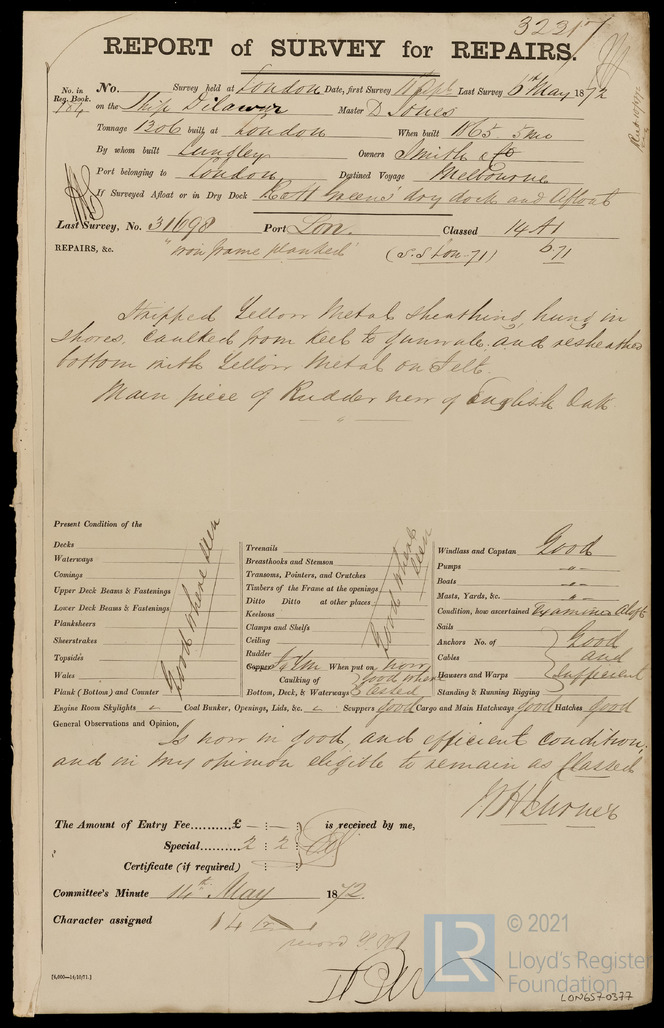 32317
REPORT of SURVEY for REPAIRS.
No. in Reg. Book.
No. Survey held at London Date, first Survey Last Survey 6th May 1872
184 on the Ship Delawar Master D Jones
Tonnage 1206 built at London When built 1865 5mo
By whom built Lungley Owners Smith & Co
Port belonging to London Destined Voyage Melbourne
If Surveyed Afloat or in Dry Dock R & H Greens' dry dock and Afloat
Last Survey, No. 31698 Port Lon. Classed 14 A1
REPAIRS, &c. "Iron frame planked" (S.S Lon-71) 6.71
Stripped Yellow Metal sheathing, hung in
shores, caulked from keel to gunwale, and resheathed
bottom with Yellow Metal on Felt.
Main piece of Rudder new of English Oak
Present Condition of the
Decks
Waterways
Comings
Upper Deck Beams & Fastenings
Lower Deck Beams & Fastenings
Planksheers
Sheerstrakes
Topsides
Wales
Plank (Bottom) and Counter
Good where seen
Treenails
Breasthooks and Stemson
Transoms, Pointers, and Crutches
Timbers of the Frame at the openings
Ditto Ditto at other places
Keelsons
Clamps and Shelfs
Ceiling
Rudder
Good where seen
Copper When put on now
Caulking of Bottom, Deck, & Waterways } Good where tested
Windlass and Capstan Good
Pumps -"-
Boats -"-
Masts, Yards, &c. -"-
Condition, how ascertained Examined Aloft
Sails
Anchors No. of
Cables
Hausers and Warps
Standing & Running Rigging
Good and Sufficient
Engine Room Skylights Coal Bunker, Openings, Lids, &c. Scuppers Good Cargo and Main Hatchways Good Hatches Good
General Observations and Opinion,
Is now in good, and efficient condition,
and in my opinion eligible to remain as Classed
The Amount of Entry Fee..........£ — : — : is received by me,
Special......... 2 : 2 :
Certificate (if required)
Committee's Minute 14th May 1872.
Character assigned 14
[6,000—14/10/71.]
© 2021
LR
Lloyd's Register
Foundation
LON657-0377